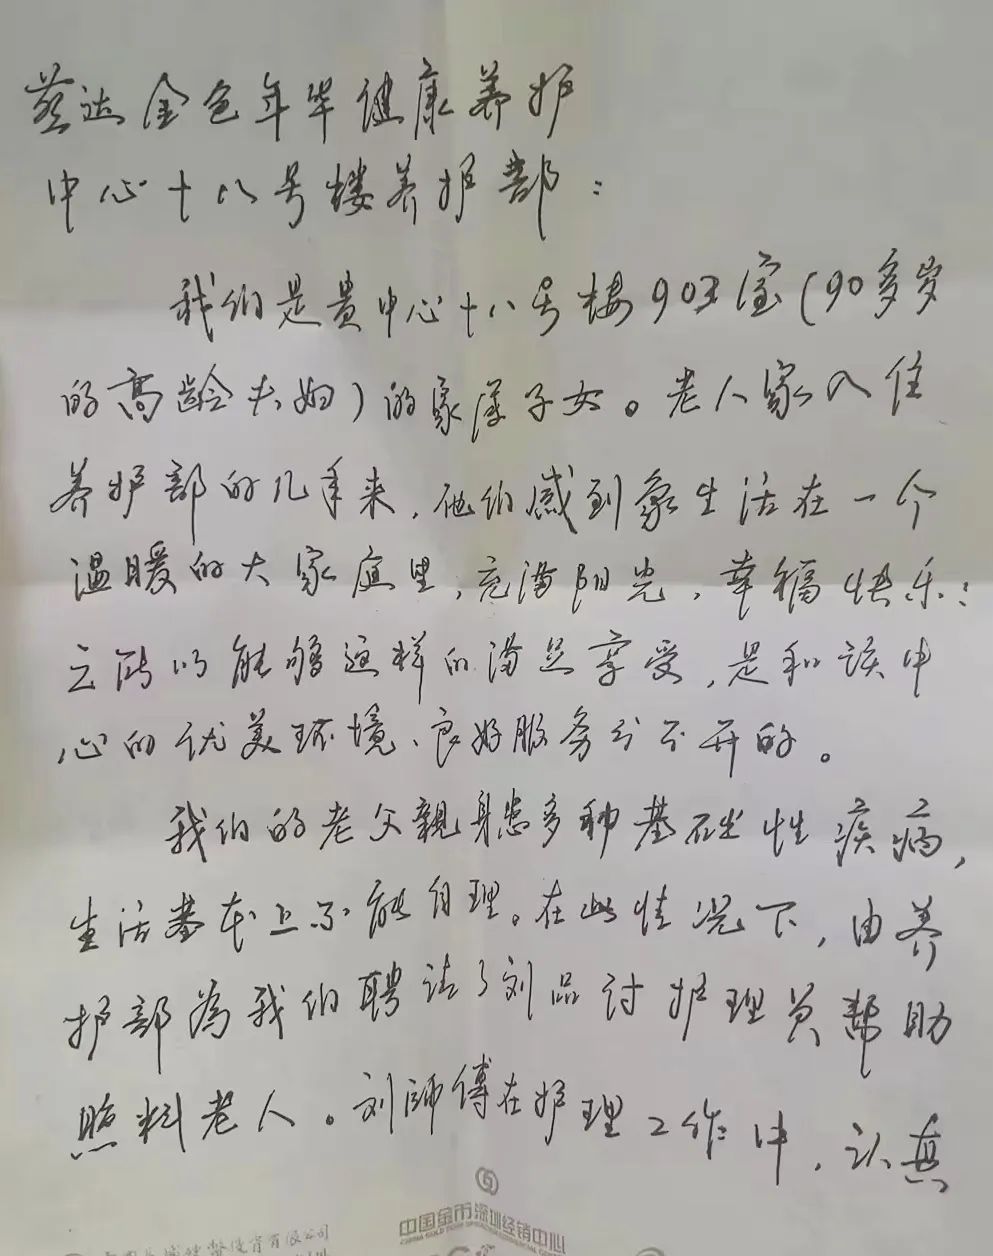 慈达金色年华健康养护
中心十八号楼养护部：
我们是贵中心十八号楼903室(90多岁
的高龄夫妇)的家属子女。老人家入住
养护部的几年来，他们感到象生活在一个
温暖的大家庭里，充满阳光，幸福快乐；
之所以能够这样的满足享受，是和该中
心的优美环境、良好服务分不开的。
我们的老父親身患多种基础性疾病，
生活基本上不能自理。在此情况下，由养
护部為我们聘请了刘品讨护理员帮助
照料老人。刘師傅在护理工作中，认真
中国金币深圳经销中心